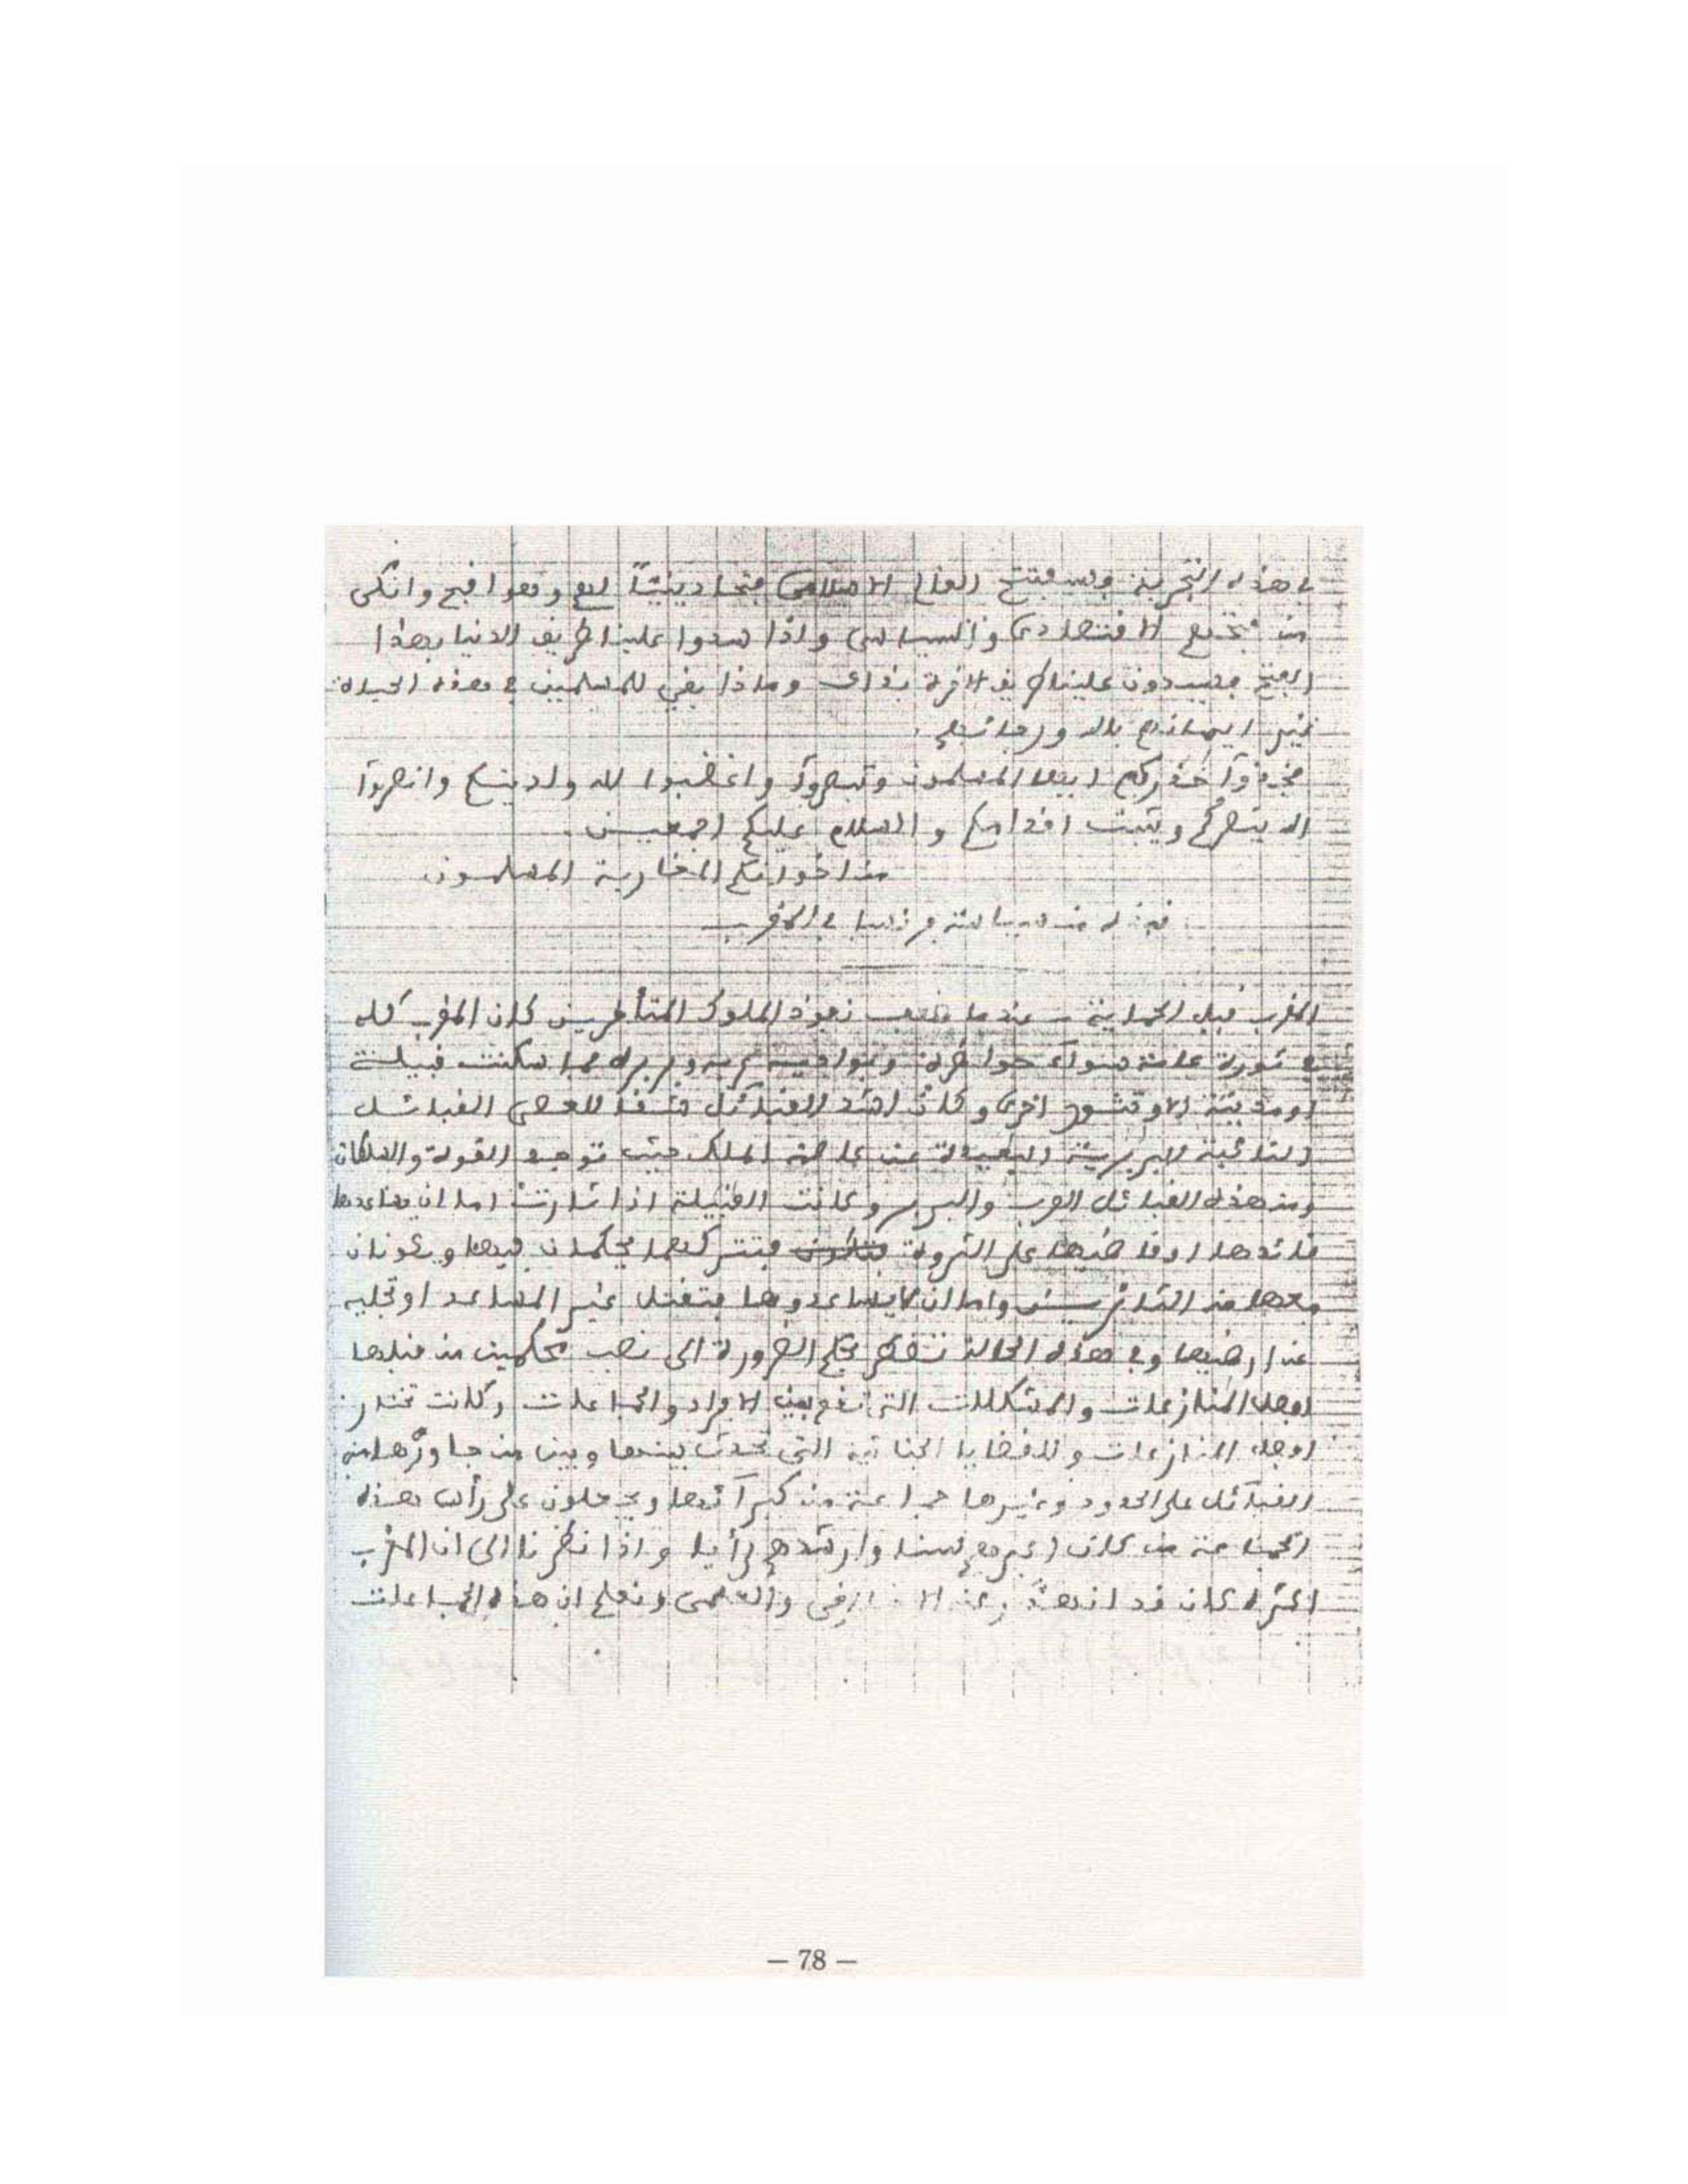 في هذه التجربة وسيفتتح العالم الاسلامي فتحا دينيا له وقع اقبح وانكى
من فتحهم الاقتصادي والسياسي واذا سدوا علينا طريق الدنيا بهذا
الفتح فيسدون علينا طريق الاخرة بذاك وماذا بقي للمسلمين في هذه الحياة
غير ايمانهم بالله ورجائهم
فخذوا حذركم ايها المسلمون وتبصروا واغضبوا لله ولدينكم وانصروا
الله ينصركم ويثبت اقدامكم والسلام عليكم اجمعين
من اخوانكم المغاربة المسلمون
نبذة من سياسة فرنسا في المغرب
المغرب قبل الحماية – عندما ضعف نفوذ الملوك المتأخرين كان المغرب كله
في ثورة عامة سواء حواضره وبواديه عربه وبربره فما سكنت قبيلة
او مدينة الا وتثور اخرى وكانت اشد القبائل
النائية البربرية البعيدة عن عاصمة الملك حيث توجد القوة والسلطان
ومن هذه القبائل العرب والبربر وكانت القبيلة اذا ثارت اما ان يساعدها
قائدها او قاضيها على الثورة فتتركهما يحكمان فيها ويكونان
معها من الثائرين واما ان لا يساعدوها فتقتل غير المساعد او تجليه
عن ارضها وفي هذه الحالة تضطر بحكم الضرورة الى نصب محكمين من قبلها
لاجل المنازعات والمشكلات التي تقع بين الافراد والجماعات وكانت تختار
لاجل المنازعات والقضايا الجنائية التي تحدث بينها وبين من جاورها من
القبائل على الحدود وغيرها جماعة من كبرائها ويجعلون على رأس هذه
الجماعة من كان اكبرهم سنا وارشدهم رأيا واذا نظرنا الى ان المغرب
اكثره كان قد انهد والعلمي ونعلم ان هذه الجماعات
— 78 —